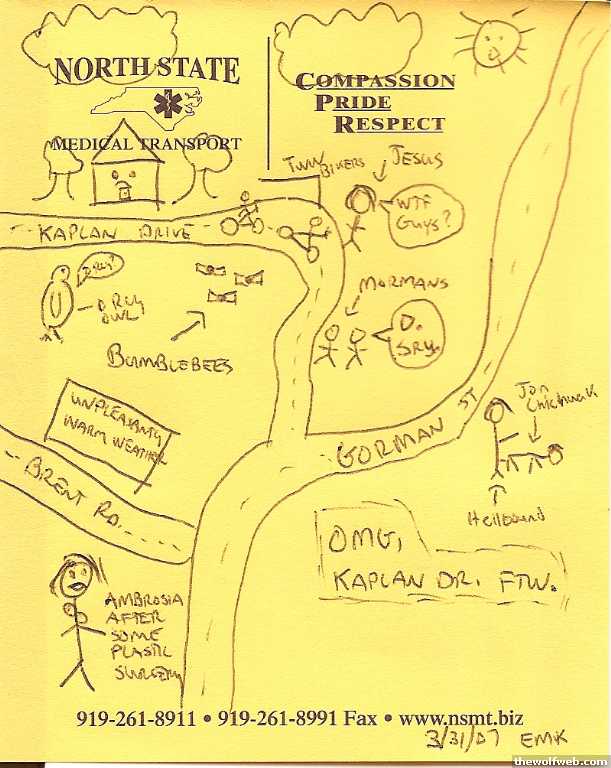 NORTH STATE
MEDICAL TRANSPORT
COMPASSION
PRIDE
RESPECT
TWIN
BIKERS
JESUS
WTF
GUYS?
KAPLAN DRIVE
OWL
BUMBLEBEES
MORMANS
SRY.
UNPLEASANTLY
WARM WEATHER
GORMAN ST
Jon
Hellbound
BRENT RD.
OMG,
KAPLAN DR. FTW.
AMBROSIA
AFTER
SOME
PLASTIC
SURGERY
919-261-8911 • 919-261-8991 Fax • www.nsmt.biz
3/31/07 EMK
thewolfweb.com